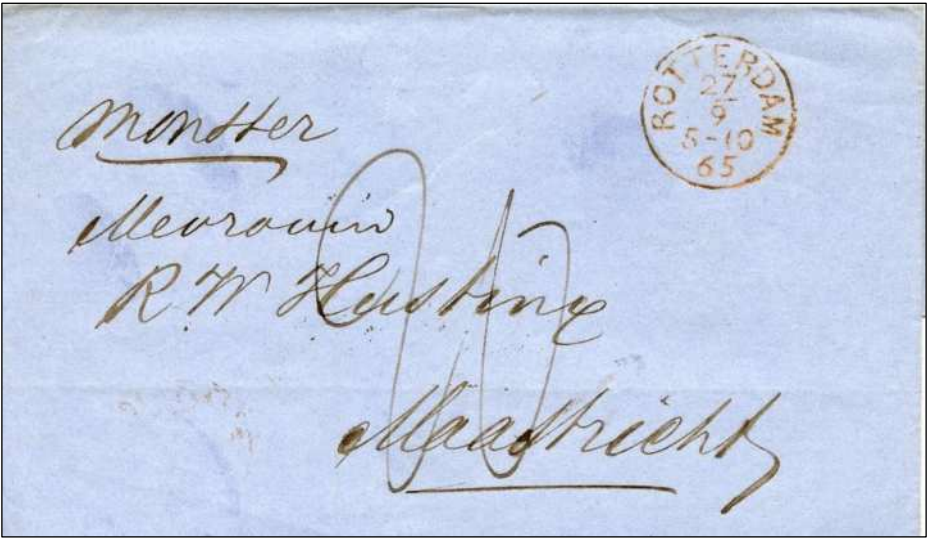 ROTTERDAM
27
9
8-10
65
Monster
Mevrouw
R W
Maastricht